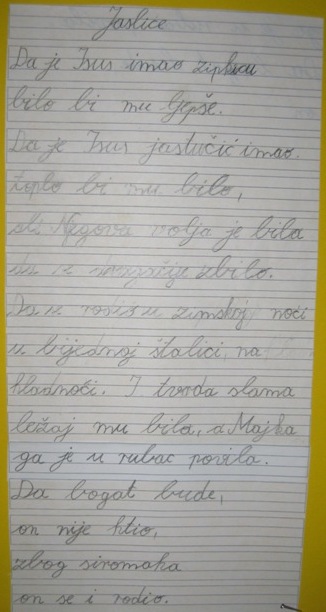 Jaslice
Da je Isus imao zipkicu
bilo bi mu ljepše.
Da je Isus jastučić imao.
toplo bi mu bilo,
ali Njegova volja je bila
da se drugačije zbilo.
Da se rodi u zimskoj noći
u bijednoj štalici, na
hladnoći. I tvrda slama
ležaj mu bila, a Majka
ga je u rubac povila.
Da bogat bude,
on nije htio,
zbog siromaha
on se i rodio.